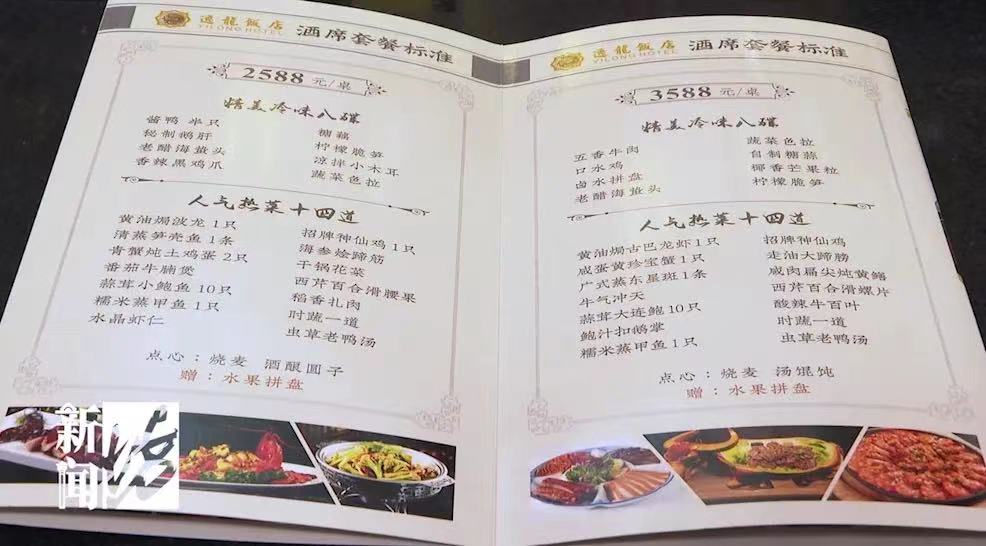 逸龍飯店 酒席套餐标准
YILONG HOTEL
2588 元/桌
精美冷味八碟
酱鸭 半只
秘制鹅肝
老醋海蜇头
香辣黑鸡爪
糖藕
柠檬脆笋
凉拌小木耳
蔬菜色拉
人气热菜十四道
黄油焗波龙1只
清蒸笋壳鱼1条
青蟹炖土鸡蛋2只
番茄牛腩煲
蒜茸小鲍鱼10只
糯米蒸甲鱼1只
水晶虾仁
招牌神仙鸡1只
海参烩蹄筋
干锅花菜
西芹百合滑腰果
稻香扎肉
时蔬一道
虫草老鸭汤
点心：烧麦 酒酿圆子
赠：水果拼盘
逸龍飯店 酒席套餐标准
YILONG HOTEL
3588 元/桌
精美冷味八碟
五香牛肉
口水鸡
卤水拼盘
老醋海蜇头
蔬菜色拉
自制糖蒜
椰香芒果粒
柠檬脆笋
人气热菜十四道
黄油焗古巴龙虾1只
咸蛋黄珍宝蟹1只
广式蒸东星斑1条
牛气冲天
蒜茸大连鲍10只
鲍汁扣鹅掌
糯米蒸甲鱼1只
招牌神仙鸡
走油大蹄膀
咸肉扁尖炖黄鳝
西芹百合滑螺片
酸辣牛百叶
时蔬一道
虫草老鸭汤
点心：烧麦 汤馄饨
赠：水果拼盘
新闻